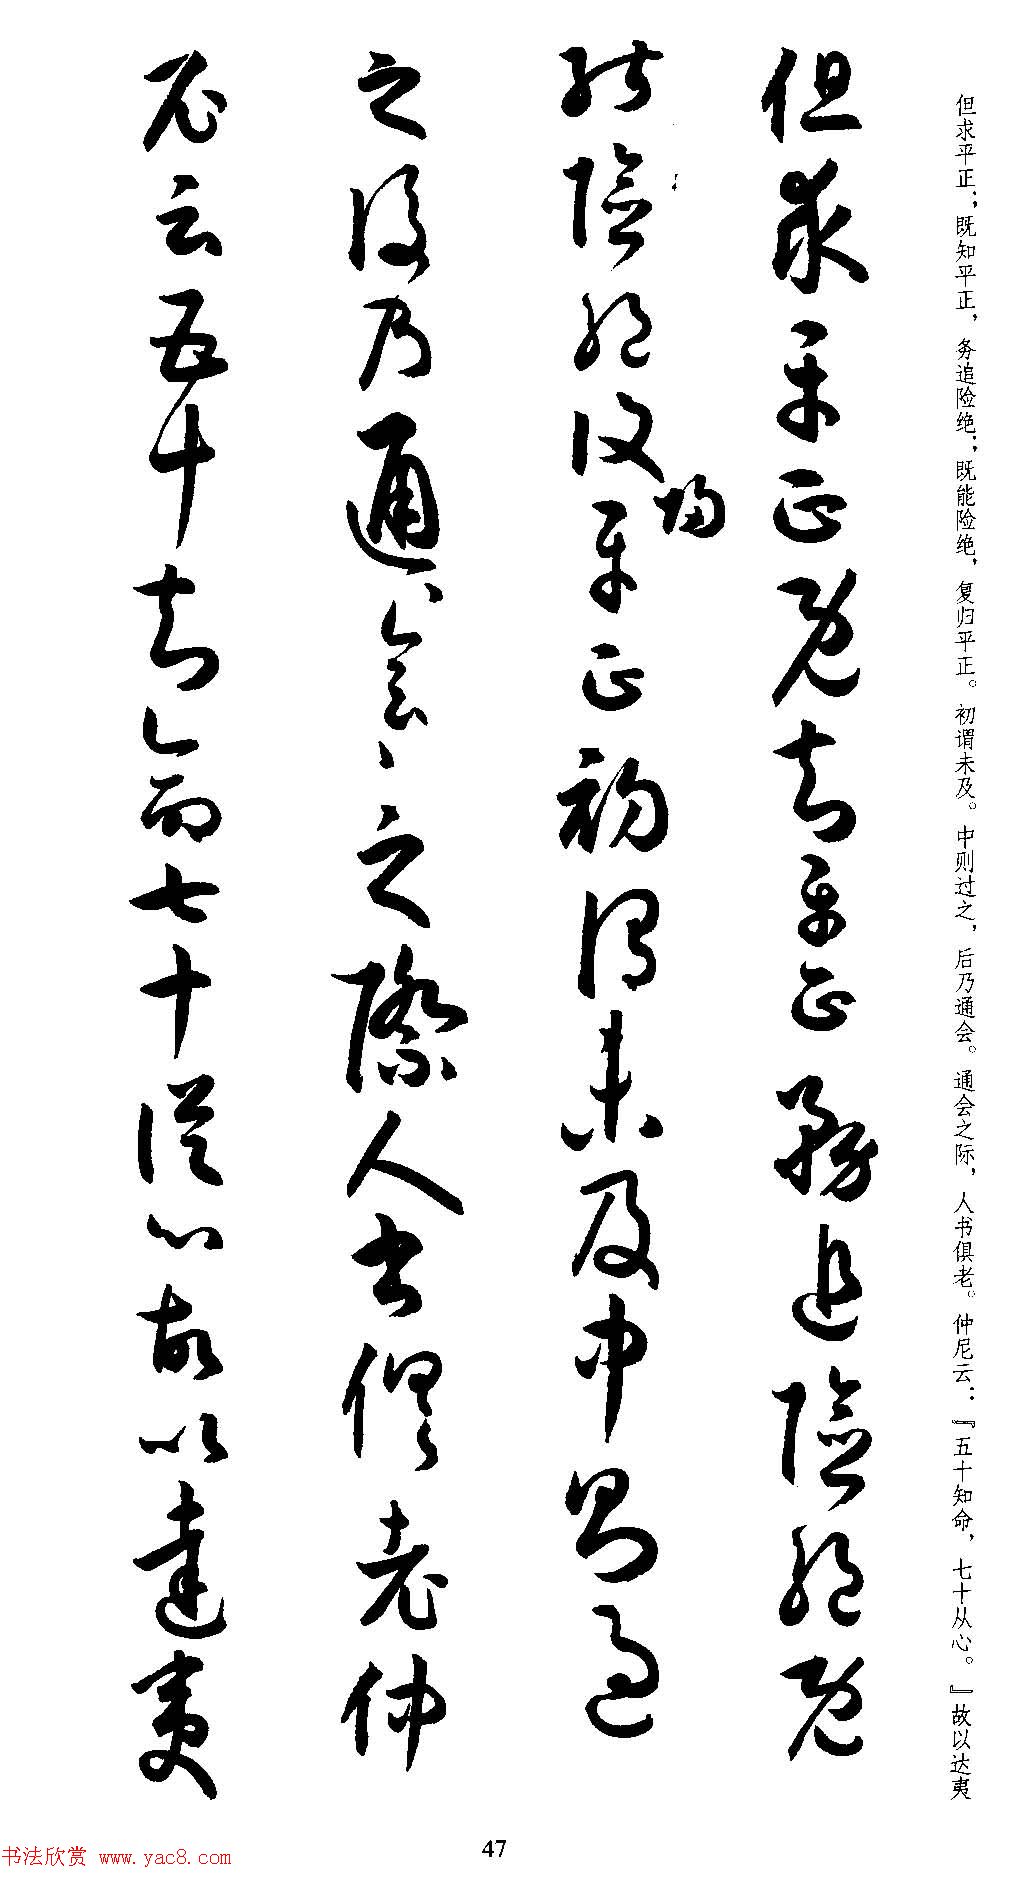 但求平正；既知平正，务追险绝；既能险绝，复归平正。初谓未及。中则过之，后乃通会。通会之际，人书俱老。仲尼云：『五十知命，七十从心。』故以达夷
但求平正既知平正務追險絕既
能險絕復歸平正初謂未及中則過
之後乃通會通會之際人書俱老仲
尼云五十知命七十從心故以達夷
47
书法欣赏 www.yac8.com